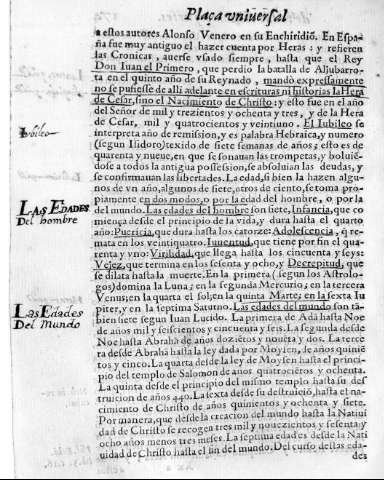 Plaça vniuersal
a estos autores Alonso Venero en su Enchiridiõ. En Espa-
ña fue muy antiguo el hazer cuenta por Heras: y refieren
las Cronicas, auerse vsado siempre, hasta que el Rey
Don Iuan el Primero, que perdio la batalla de Aljubarro-
ta en el quinto año de su Reynado, mandò expressamente
no se pusiesse de alli adelante en escrituras ni historias la Hera
de Cesar, sino el Nacimiento de Christo: y esto fue en año
del Señor de mil y trezientos y ochenta y tres, y de la Hera
de Cesar, mil y quatrocientos y veintiuno. El Iubileo se
interpreta año de remission, y es palabra Hebraica, y numero
(segun Isidoro) texido de siete semanas de años; esto es de
quarenta y nueue, en que se sonauan las trompetas, y boluiẽ-
dose a todos la antigua possession, se absoluian las deudas, y
se confirmauan las libertades. La edad, si bien la hazen algu-
nos de vn año, algunos de siete, otros de ciento, se toma pro-
piamente en dos modos, o por la edad del hombre, o por la
del mundo. Las edades del hombre son siete, Infancia, que co-
miença desde el principio de la vida, y dura hasta el quarto
año; Puericia, que dura hasta los catorze; Adolescencia, q̃ re-
mata en los veintiquatro. Iuuentud, que tiene por fin el qua-
renta y vno: Virilidad, que llega hasta los cincuenta y seys:
Vejez, que termina en los sesenta y ocho, y Decrepitud, que
se dilata hasta la muerte. En la primera (segun los Astrolo-
gos) domina la Luna; en la segunda Mercurio; en la tercera
Venus; en la quarta el sol; en la quinta Marte; en la sexta Iu
piter, y en la septima Saturno. Las edades del mundo son ta-
bien siete segun Iuan Lucido. La primera de Adã hasta Noe
de años mil y seiscientos y cincuenta y seis. La segunda desde
Noe hasta Abrahã de años dozietos y nouẽta y dos. La terce
ra desde Abrahã hasta la ley dada por Moysen, de años quiniẽ
tos y cinco. La quarta desde la ley de Moysen hasta el princi-
pio del templo de Salomon de años quatrociẽtos y ochenta.
La quinta desde el principio del mismo templo hasta su des
truicion de años 440. La sexta desde su destruiciõ, hasta el na-
cimiento de Christo de años quinientos y ochenta y siete.
Por manera, que desde la creacion del mundo hasta la Natiui
dad de Christo se recogen tres mil y nouecientos y sesenta y
ocho años menos tres meses. La septima edad es desde la Nati
uidad de Christo hasta el fin del mundo. Del curso destas eda-
des
Jubileo
Las Edades
Del hombre
Las Edades
Del Mundo